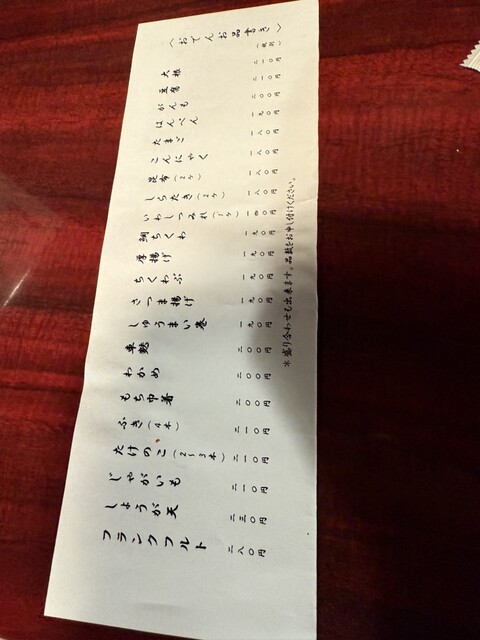 〈おでんお品書き〉
(税別)
大根 二一〇円
豆腐 二一〇円
がんも 二〇〇円
はんぺん 一九〇円
たまご 一八〇円
こんにゃく 一八〇円
昆布(2ヶ) 一八〇円
しらたき(2ヶ) 一八〇円
いわしつみれ(1ヶ) 一四〇円
鯛ちくわ 一九〇円
厚揚げ 一九〇円
ちくわぶ 一九〇円
さつま揚げ 一九〇円
しゅうまい巻 一九〇円
車麩 二〇〇円
わかめ 二〇〇円
もち巾着 二〇〇円
ふき(4本) 二一〇円
たけのこ(2~3本) 二一〇円
じゃがいも 二一〇円
しょうが天 二三〇円
フランクフルト 二八〇円
*盛り合わせも出来ます。品数をお申し付けください。